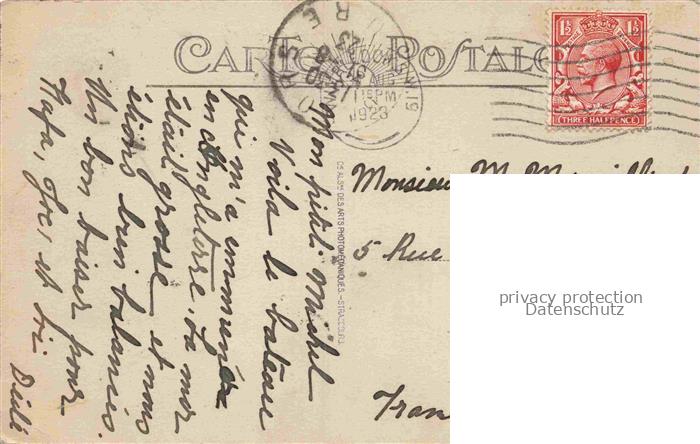 CARTE POSTALE
LONDON
15 PM
1923
1½ 1½
THREE HALFPENCE
Mon petit Michel
Voila le bateau
qui m'a emmenée
en Angleterre. La mer
était grosse et nous
étions bien balancés.
Un bon baiser pour
et toi
Cie ALSne DES ARTS PHOTOMÉCANIQUES.–STRASBOURG
Monsieur M.
5 Rue
Fran
privacy protection
Datenschutz